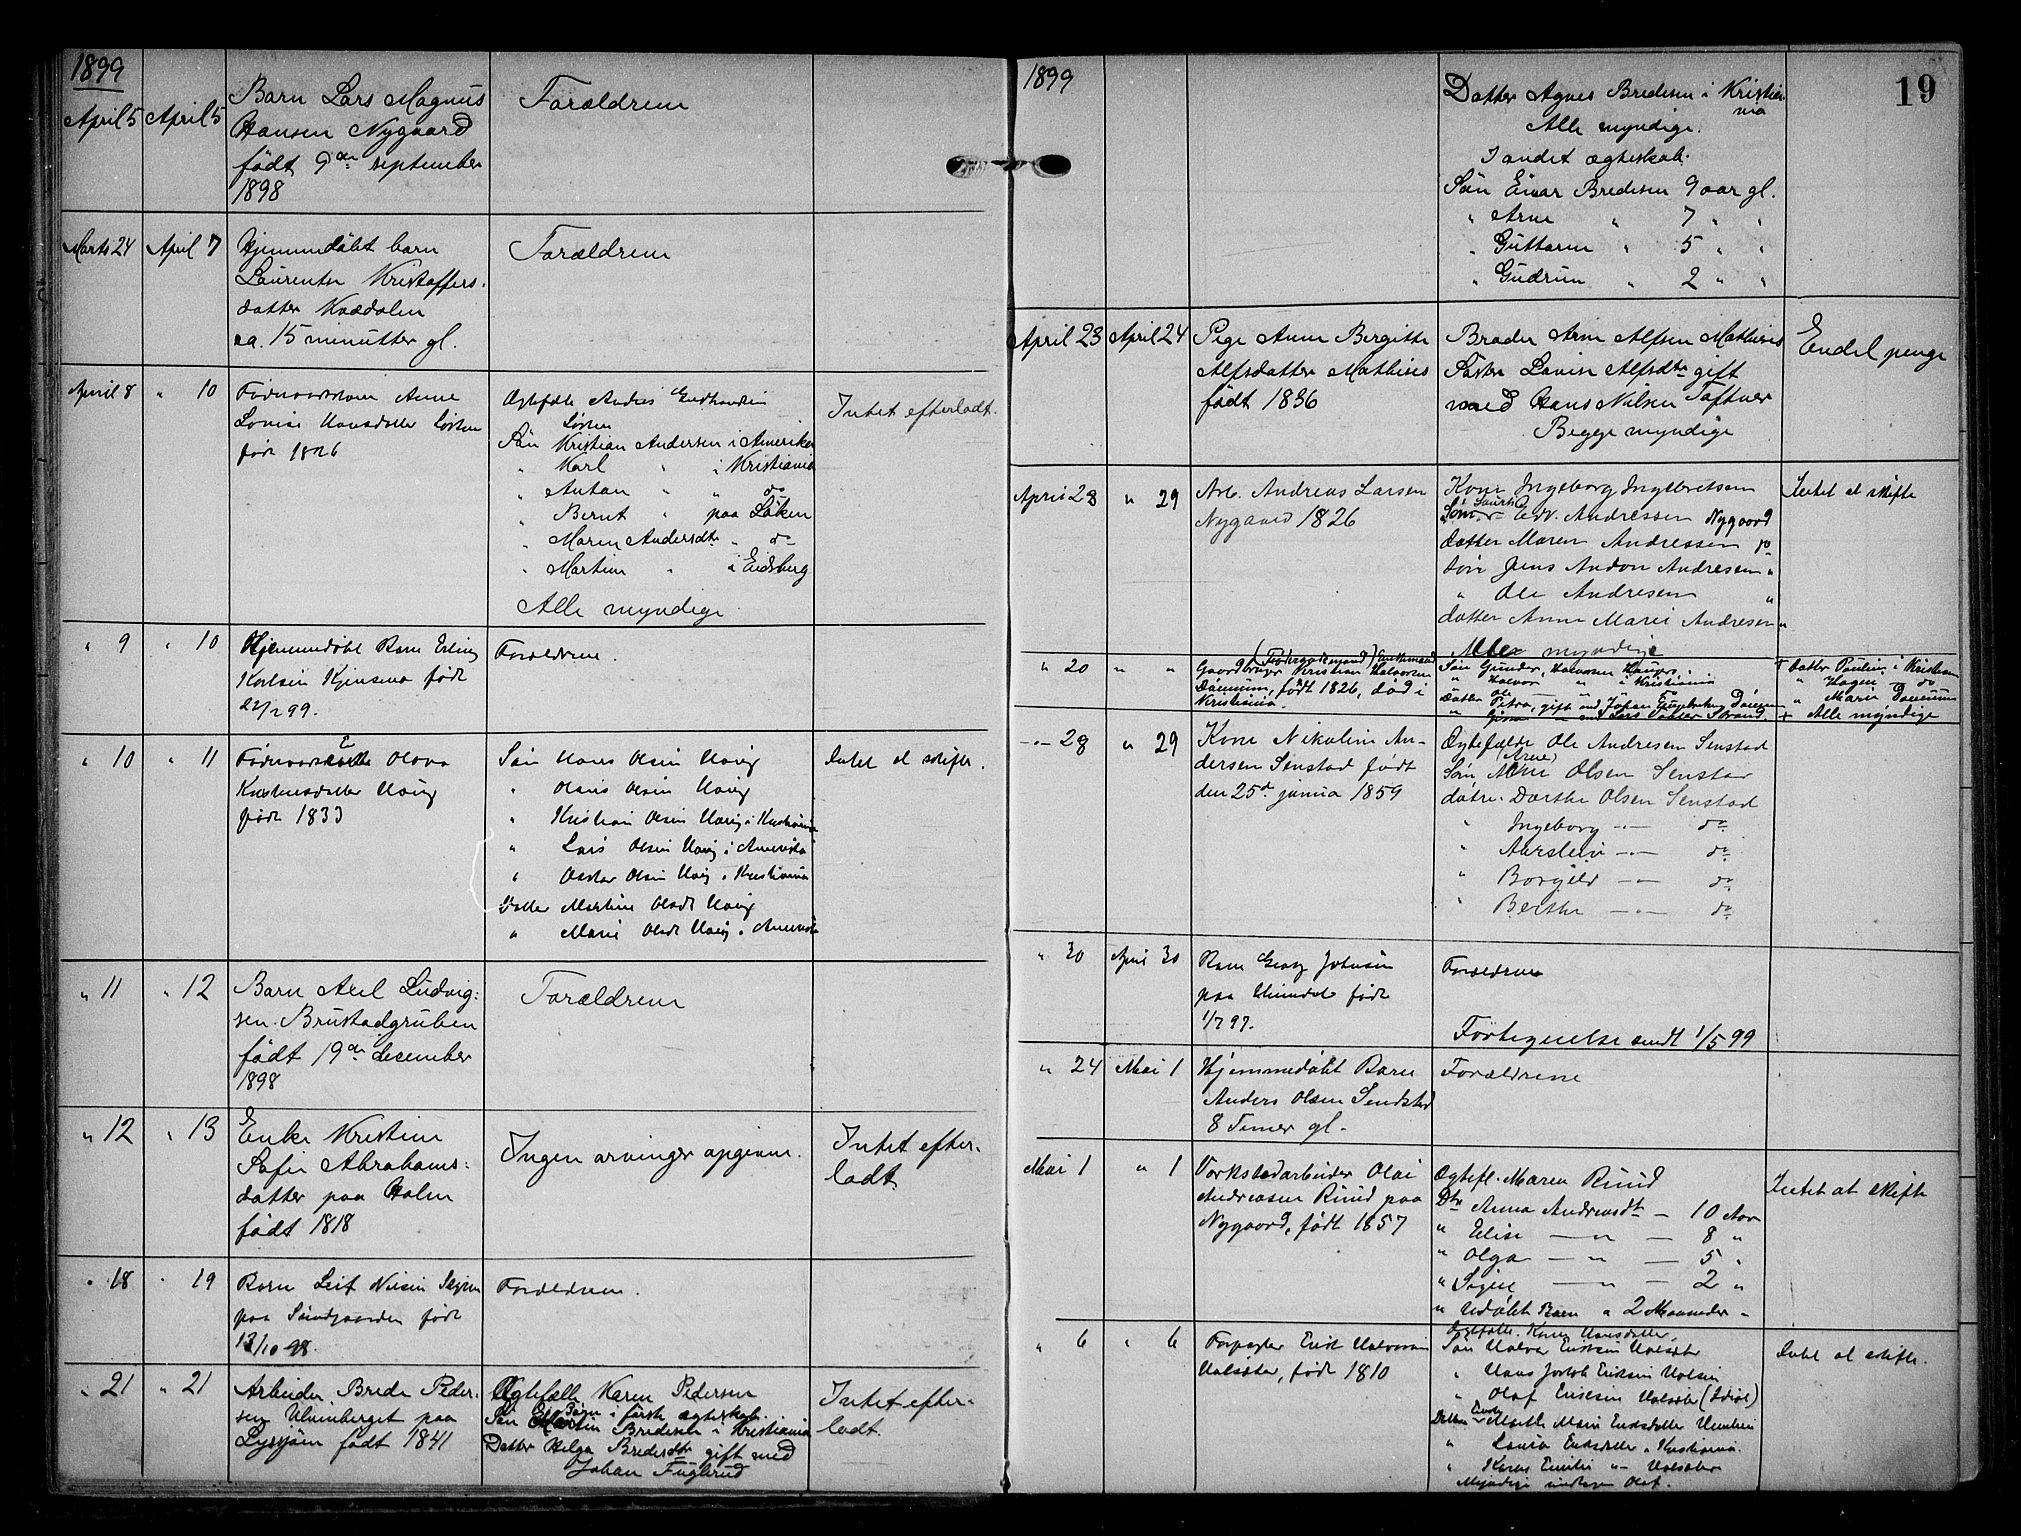 1899
April 5 April 5 Barn Lars Magnus Forældrene
Hansen Nygaard
født 9de september
1898
Marts 24 April 7 Hjemmedøbt barn Forældrene
Laurentse Kristoffers-
datter Kvædalen
ca. 15 minutter gl.
April 8 " 10 Føderaadskone Anne
Lovise Hansdatter Løken
født 1826
Ægtefælle Andres Gudbrandsen
Løken
Søn Kristian Andersen i Amerika
" Karl " i Kristiania
" Anton " " do
" Bernt " paa Løken
" Maren Andersdtr " do
" Martin " i Eidsberg
Alle myndige
Intet efterladt.
" 9 " 10 Hjemmedøbt Barn Erling Forældrene.
Karlsen Kjensmo født
21/2 99.
" 10 " 11 Føderaadsenke Olava
Kristiansdatter Haug
født 1833
Søn Hans Olsen Haug
" Olaus Olsen Haug
" Kristian Olsen Haug i Kristiania
" Lars Olsen Haug i Amerika
" Oskar Olsen Haug i Kristiania
Datter Martine Olsdt Haug
" Marie Olsdt Haug i Amerika
Intet at skifte.
" 11 " 12 Barn Axel Ludvig- Forældrene
sen Brustadgruben
født 19de december
1898
" 12 " 13 Enke Kristine Ingen arvinger opgivne. Intet efter-
Sofie Abrahams- ladt.
datter paa Holm
født 1818
" 18 " 19 Barn Leif Nilsen Forældrene.
paa Sundgaarden født
13/10 98.
" 21 " 21 Arbeider Brede Peder-
sen Ulvinberget paa
Lyssjøen født 1841
Ægtefælle Karen Pedersen
Børn i første ægteskab.
Søn Martin Bredesen i Kristiania
Datter Helga Bredesdtr gift med
Johan Fuglerud
Intet efter-
ladt.
1899
19
Datter Agnes Bredesen i Kristia-
nia
Alle myndige.
I andet ægteskab.
Søn Einar Bredesen 9 aar gl.
" Arne " 7 " "
" Guttorm " 5 " "
" Gudrun " 2 " "
April 23 April 24 Pige Anne Bergitte
Alfsdatter Mathiis
født 1836
Broder Arne Alfsen Mathiis
Søster Lovise Alfsdtr gift
med Hans Nilsen Toftner
Begge myndige
Endel penge
April 28 " 29 Arb. Andreas Larsen
Nygaard 1826
Kone Ingeborg Ingebretsen
Søn Edv. Andressen Nygaard
datter Maren Andressen do
søn Jens Anton Andresen "
" Ole Andresen "
datter Anne Marie Andresen "
Alle myndige
Intet at skifte
" 20 " " (Føderaadsmand) Enkemand
Gaardbruger Kristian Halvorsen
Dønnum, født 1826, død i
Kristiania.
Søn Gunder Halvorsen Hauger
" Halvor " i Kristiania
" Ole do
datter Petra, gift med Johan
Datter Pauline i Kristiania
" Hagen do
" Marie Dønnum
Alle myndige
" 28 " 29 Kone Nikoline An-
dersen Senstad født
den 25de januar 1859
Ægtefælde Ole Andresen Senstad
(Arne)
Søn Arne Olsen Senstad
døtre Dorthe Olsen Senstad
" Ingeborg " do
" " do
" Borgild " do
" Berthe " do
" 30 April 30 Barn Georg Johnsen Forældrene
paa født
1/7 97.
Fortegnelse sendt 1/5 99
" 24 Mai 1 Hjemmedøbt Barn Forældrene
Anders Olsen Sendstad
8 Timer gl.
Mai 1 " 1 Verkstedarbeider Olai
Andreasen Ruud paa
Nygaard, født 1857
Ægtefl. Maren Ruud
Dtr Anna Andreasdt - 10 Aar
" Elise " 8 "
" Olga " 5 "
" Signe " 2 "
" Udøbt Barn " 2 Maaneder
Intet at skifte
" 6 " 6 Forpagter Erik Halvorsen
Ualseter, født 1810
Ægtefælle Karen Hansdatter,
Søn Halvor Eriksen Ualseter
" Hans Jakob Eriksen
" Olaf Eriksen Ualseter (Idiot)
Datter Enke Marthe Marie Eriksdatter
" Lovisa Eriksdatter i Kristiania.
" Karen Emilie " Ualseter
Myndige undtagen Olaf.
Intet at skifte.